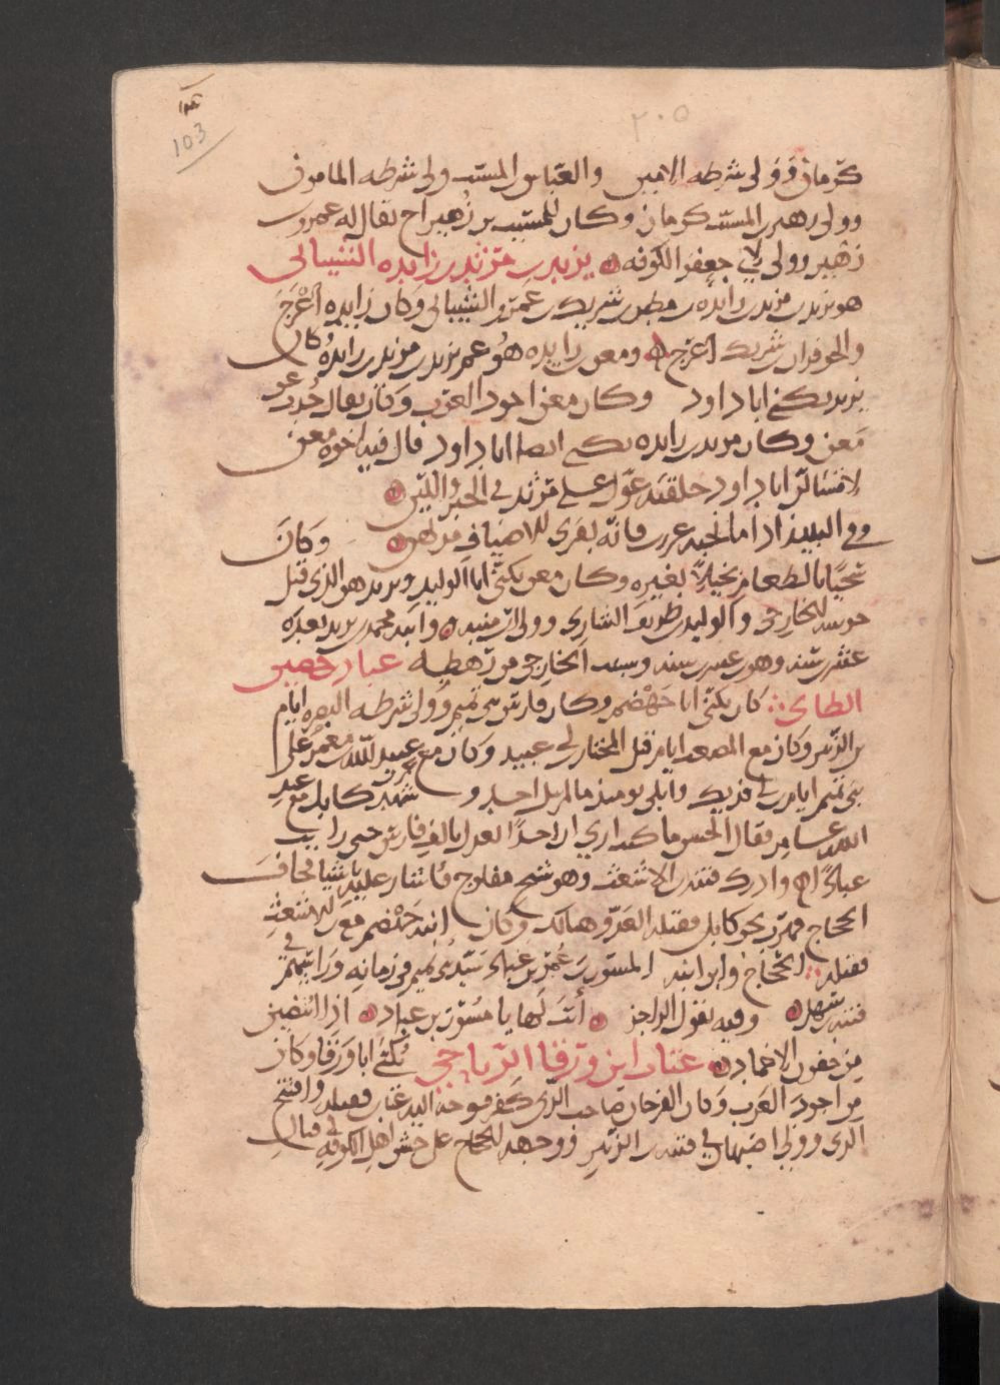 ١٠٣
103
٢٠٥
كرمان وولى شرطه الامين والعباس بن المسيب ولى شرطه المامون
وولى زهير بن المسيب كرمان وكان للمسيب بن زهير اخ يقال له عمرو بن
زهير وولى لابي جعفر الكوفه يزيد بن مزيد بن زايده الشيبانى
هو يزيد بن مزيد بن زايده بن مطر بن شريك بن عمرو الشيبانى وكان زايده اعرج
والحوفزان بن شريك اعرج ومعن بن زايده هو عم يزيد بن مزيد بن زايده وكان
يزيد يكنى ابا داود وكان معن اجود العرب وكان يقال حدث عن
معن وكان مزيد بن زايده يكنى ايضا ابا داود قال فيه اخوه معن
لا تسالن ابا داود خلقته عول على مزيد في الخبز واللبن
وفي النبيذ اذا ما لحمه فانه بقرى للاضياف مرتهن وكان
سخيا بالطعام بخيلا بغيره وكان معن يكنى ابا الوليد ويزيد هو الذى قتل
الخارجى والوليد بن طريف الشارى وولى ارمنيه وابنه محمد بن يزيد بعده
عشر سنه وهو الخارجى من رهطه عباد بن حصين
الطاى كان يكنى ابا جهضم وكان فارس بنى تميم وولى شرطه البصره ايام
بن الزبير وكان مع المصعب ايام قتل المختار بن ابي عبيد وكان مع عمر بن عبيد الله بن معمر على
بنى تميم ايام ابي فديك وابلى يوميذ ما لم يبل احد و شهد كابل مع عبد
الله بن عامر فقال الحسن ما كنت ارى ان احدا يعدل بالف فارس حتى رايت
عبادا وادرك فتنه بن الاشعث وهو شيخ مفلوج فاشار عليه باشيا فخاف
الحجاج فهرب نحو كابل فقتله العدو هنالك وكان ابنه جهضم مع بن الاشعث
فقتله الحجاج وابن ابنه المسور بن عمر بن عباد سيد بنى تميم فى زمانه وراسهم في
فتنه بن سهيل وفيه يقول الراجز انت لها يا مسور بن عباد اذا انتضين
من جفون الاغماد عتاب ابن ورقا الرياحى يكنى ابا ورقا وكان
من اجود العرب وكان الفرخان صاحب الرى كفر فوجه اليه عتاب فقتله وافتتح
الرى وولى اصبهان في فتنه بن الزبير ووجهه الحجاج على جيش اهل الكوفه في قتال